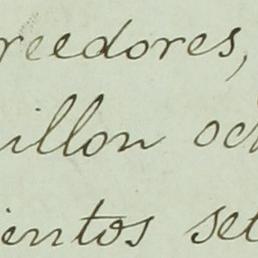 reedores,
illon oc
ientos set